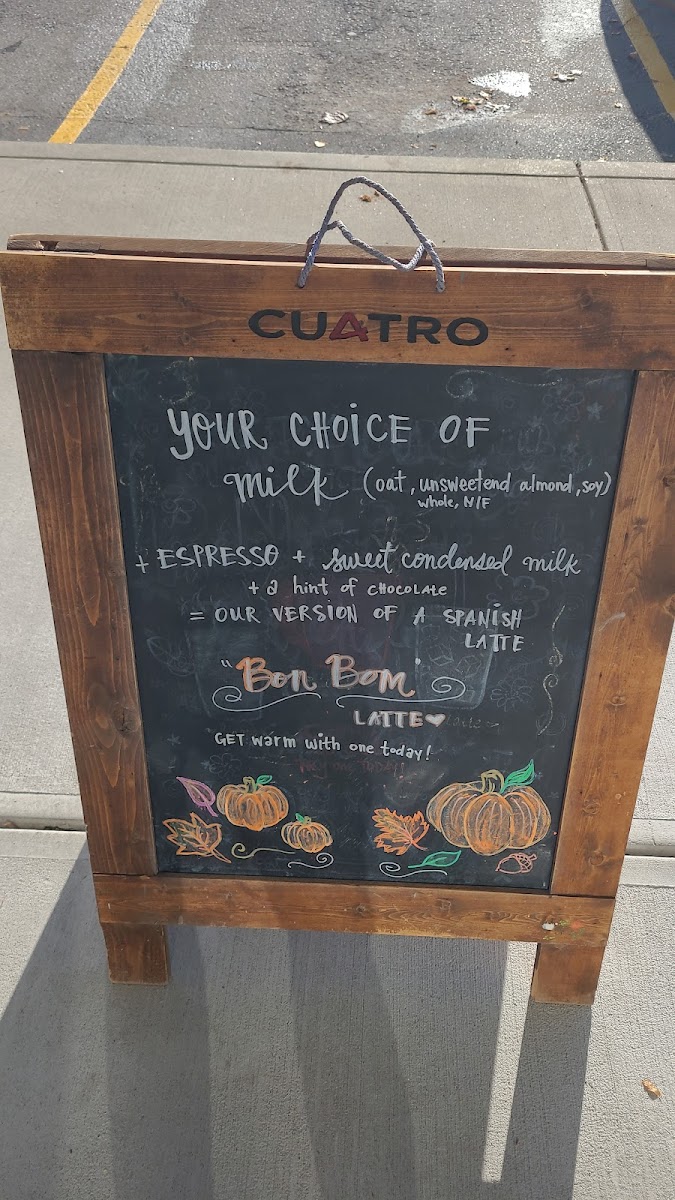 CUATRO
YOUR CHOICE OF
milk (oat, unsweetend almond, soy)
whole, N/F
+ ESPRESSO + sweet condensed milk
+ a hint of CHOCOLATE
= OUR VERSION OF A SPANISH
LATTE
"Bon Bom
LATTE♥
GET warm with one today!